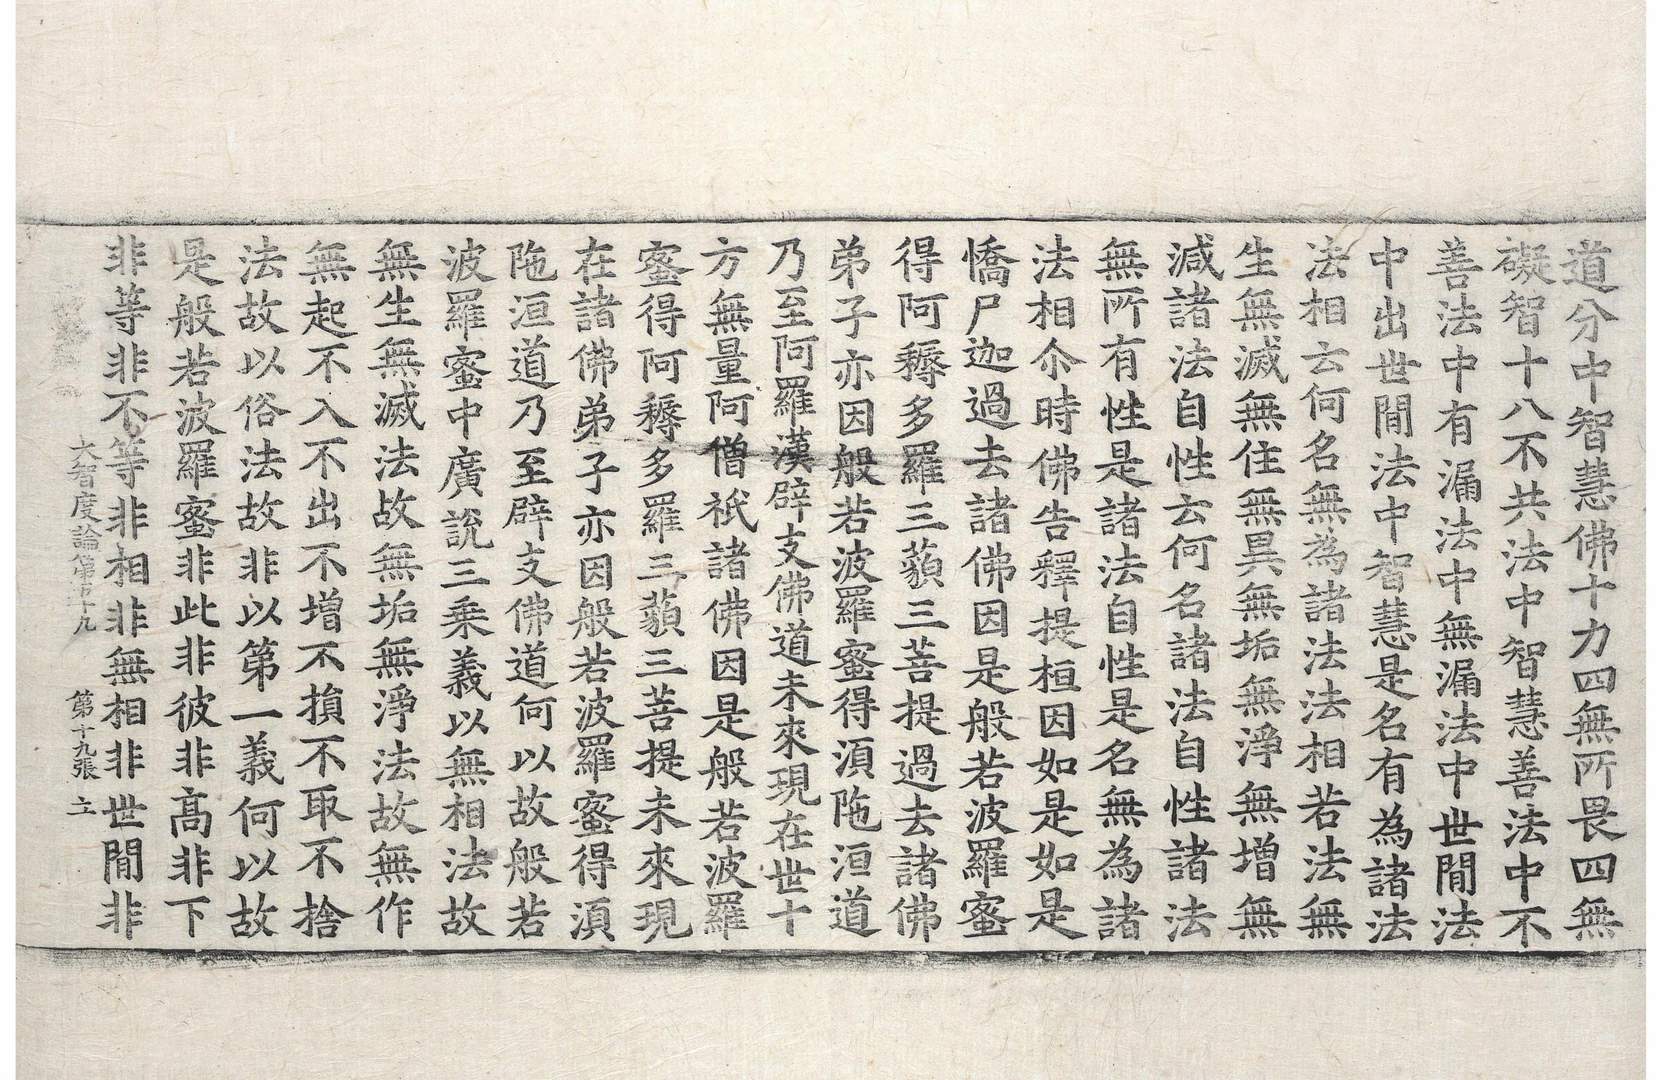 道分中智慧佛十力四無所畏四無
礙智十八不共法中智慧善法中不
善法中有漏法中無漏法中世間法
中出世間法中智慧是名有為諸法
法相云何名無為諸法法相若法無
生無滅無住無異無垢無淨無增無
減諸法自性云何名諸法自性諸法
無所有性是諸法自性是名無為諸
法相尒時佛告釋提桓因如是如是
憍尸迦過去諸佛因是般若波羅蜜
得阿耨多羅三藐三菩提過去諸佛
弟子亦因般若波羅蜜得湏陁洹道
乃至阿羅漢辟支佛道未來現在世十
方無量阿僧祇諸佛因是般若波羅
蜜得阿耨多羅三藐三菩提未來現
在諸佛弟子亦因般若波羅蜜得湏
陁洹道乃至辟支佛道何以故般若
波羅蜜中廣說三乘義以無相法故
無生無滅法故無垢無淨法故無作
無起不入不出不增不損不取不捨
法故以俗法故非以第一義何以故
是般若波羅蜜非此非彼非高非下
非等非不等非相非無相非世間非
大智度論 第十九張 立